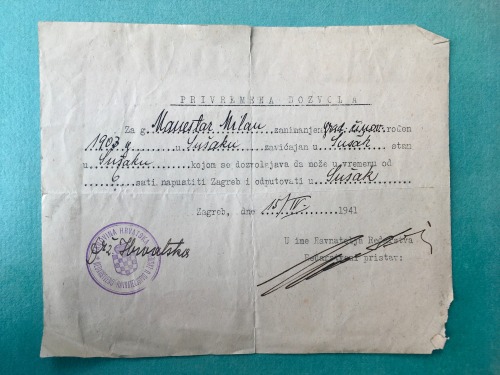 PRIVREMENA DOZVOLA
Za g. Manestar Milan zanimanjem grad. činov. rođen
1903 g u Sušaku zavičajan u Sušak stan
u Sušaku kojom se dozvoljava da može u vremenu od
6 sati napustiti Zagreb i odputovati u Sušak
Zagreb, dne 15/IV. 1941
U ime Ravnatelja Redarstva
Redarstveni pristav:
HRVATSKA
Hrvatska